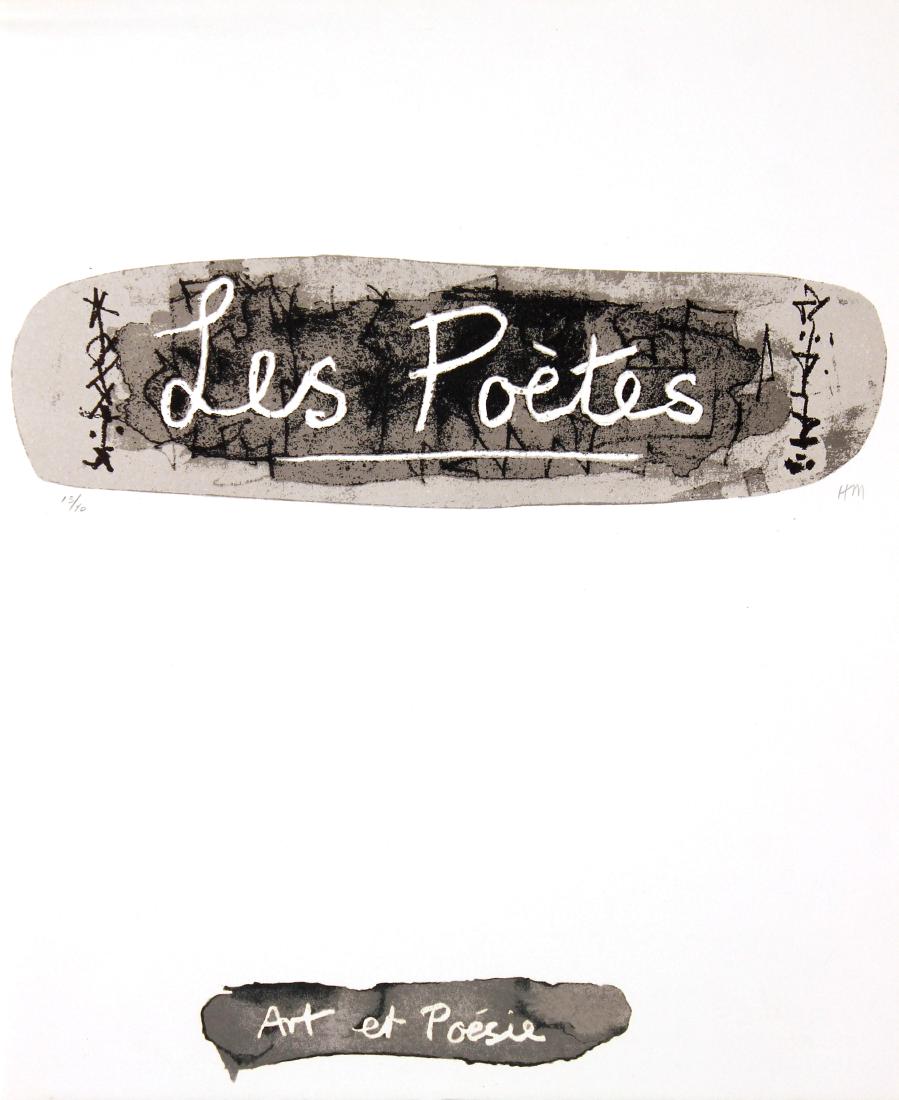 Les Poètes
15/90
HM
Art et Poésie